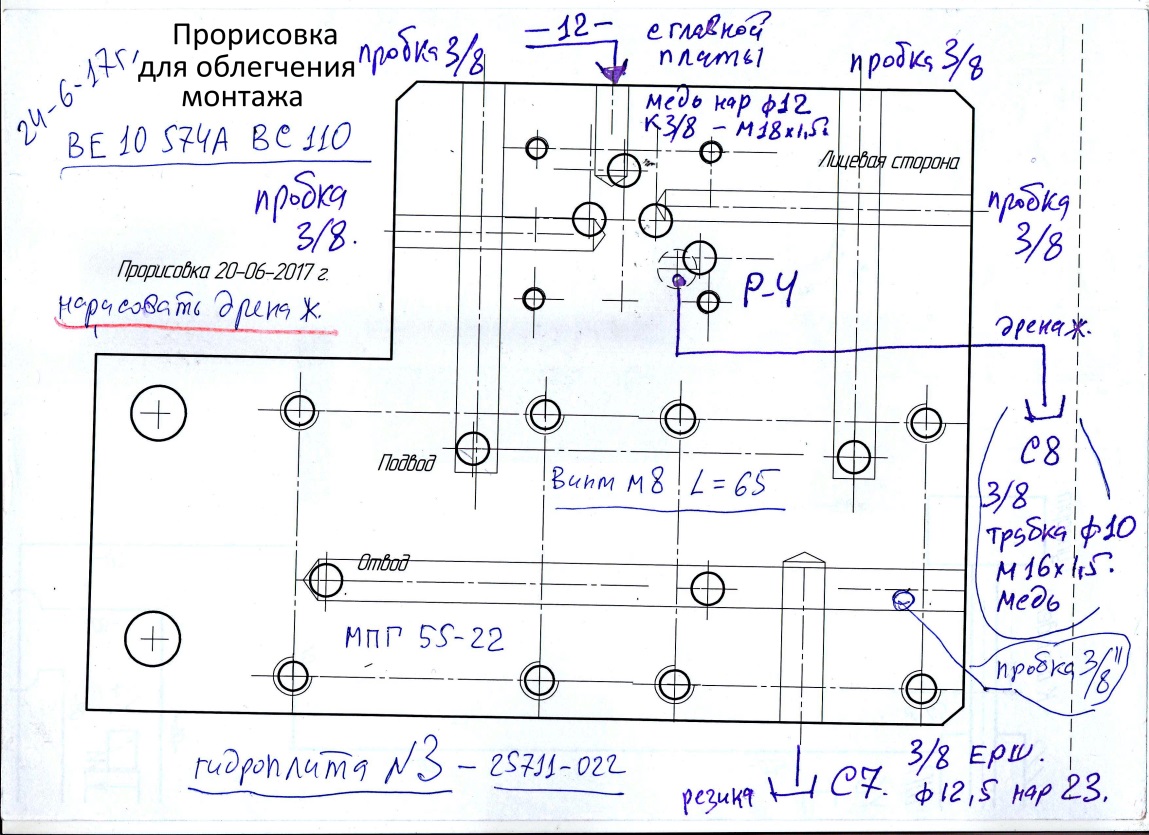 Прорисовка
для облегчения
монтажа
24-6-17г,
ВЕ 10 574А ВС 110
пробка 3/8
-12-
с главной
платы
пробка 3/8
медь нар ф12
К 3/8 - М18х1,5.
Лицевая сторона
пробка
3/8.
пробка
3/8
Прорисовка 20-06-2017 г.
нарасовать дренаж.
Р-4
дренаж.
С8
3/8
трубка ф10
М16х1,5.
медь
Подвод
Винт М8 L=65
Отвод
МПГ 55-22
пробка 3/8"
гидроплита N3 - 25711-022
резика
С7.
3/8 ЕРШ.
ф12,5 нар 23.